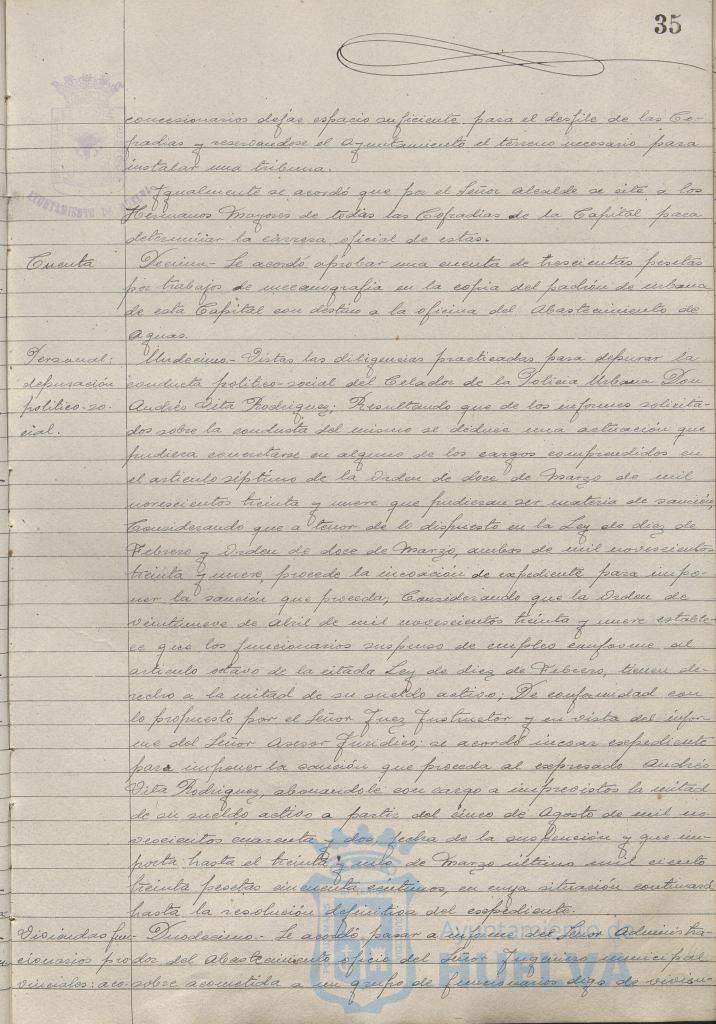 35
concesionarios dejar espacio suficiente para el desfile de las Co-
fradias y reservandose el Ayuntamiento el terreno necesario para
instalar una tribuna.
Igualmente se acordó que por el Señor Alcalde se cite a los
Hermanos Mayores de todas las Cofradias de la Capital para
determinar la carrera oficial de estas.
Cuenta
Decimo.- Se acordó aprobar una cuenta de trescientas pesetas
por trabajos de mecanografia en la copia del padrón de urbana
de esta Capital con destino a la oficina del Abastecimiento de
Aguas.
Personal:
depuración
politico-so-
cial.
Undecimo.- Vistas las diligencias practicadas para depurar la
conducta politico-social del Celador de la Policia Urbana Don
Andrés Vita Rodriguez; Resultando que de los informes solicita-
dos sobre la conducta del mismo se deduce una actuación que
pudiera concretarse en alguno de los cargos comprendidos en
el articulo séptimo de la Orden de doce de Marzo de mil
novescientos treinta y nueve que pudieran ser materia de sanción,
Considerando que a tenor de lo dispuesto en la Ley de diez de
Febrero y Orden de doce de Marzo, ambas de mil novescientos
treinta y nueve, procede la incoación de expediente para impo-
ner la sanción que proceda; Considerando que la Orden de
veintinueve de Abril de mil novescientos treinta y nueve estable-
ce que los funcionarios suspenso de empleo conforme al
articulo octavo de la citada Ley de diez de Febrero, tienen de-
recho a la mitad de su sueldo activo; De conformidad con
lo propuesto por el Señor Juez Instructor y en vista del infor-
me del Señor Asesor Juridico; se acordó incoar expediente
para imponer la sanción que proceda al expresado Andrés
Vita Rodriguez, abonandole con cargo a imprevistos la mitad
de su sueldo activo a partir del cinco de Agosto de mil no-
vescientos cuarenta y dos, fecha de la suspensión y que im-
porta hasta el treinta y uno de Marzo último mil ciento
treinta pesetas cincuenta centimos, en cuya situación continuará
hasta la resolución definitiva del expediente.
Viviendas fun-
cionarios pro-
vinciales: aco-
Duodecimo.- Se acordó pasar a informe del Señor Administra-
dor del Abastecimiento oficio del Señor Ingeniero municipal
sobre acometida a un grupo de funcionarios digo de vivien-
Ayuntamiento de
HUELVA